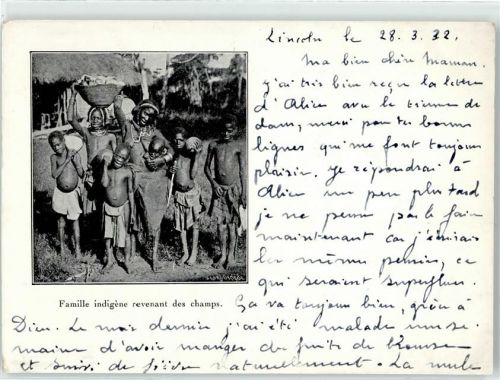 Lincoln le 28.3.32.
Ma bien chère Maman.
j'ai très bien reçu la lettre
d'Alice avec la tienne de
dans, merci pour tes bonnes
lignes qui me font toujours
plaisir. Je répondrai à
Alice un peu plus tard
je ne peux pas le faire
maintenant car j'écrirais
les même pensées, ce
qui seraient superflues.
Famille indigène revenant des champs.
Ça va toujours bien, grâce à
Dieu. Le mois dernier j'ai été malade une se-
maine d'avoir manger des fruits de
et suivi de fièvre naturellement. La mule